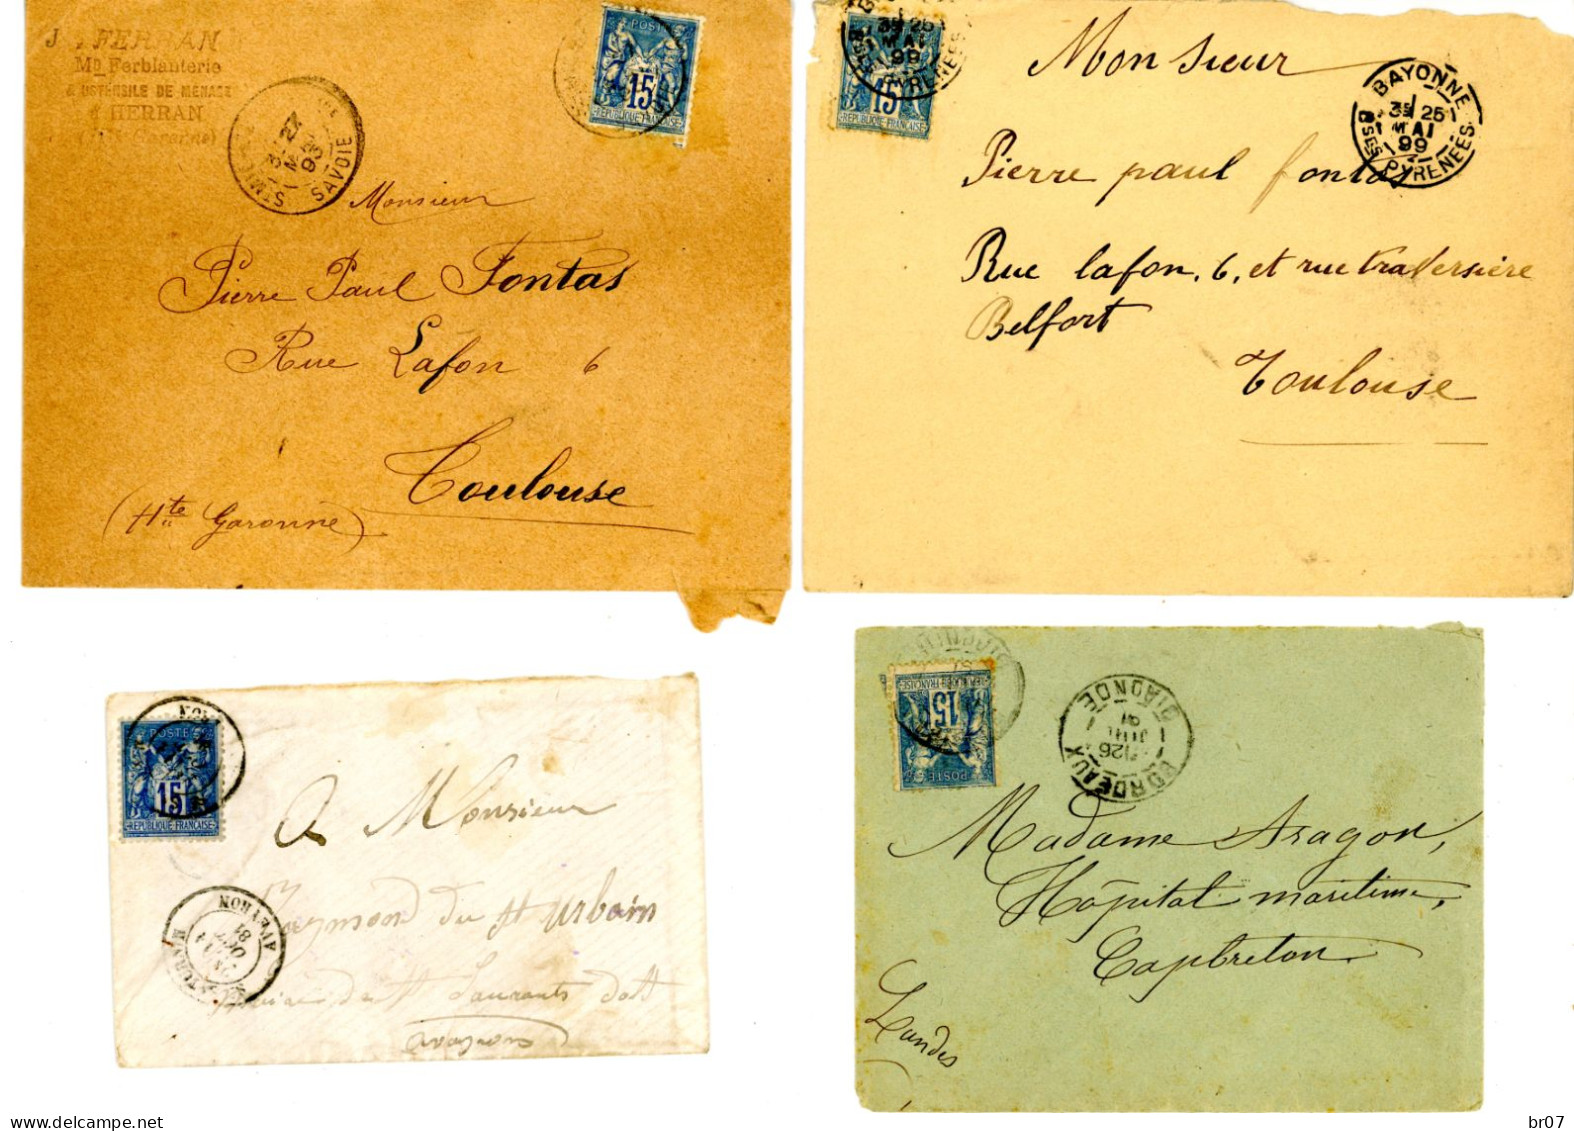 J. FERRAN
Md Ferblanterie
& USTENSILE DE MENAGE
à HERRAN
POSTE
15
REPUBLIQUE FRANÇAISE
27
93
SAVOIE
Monsieur
Pierre Paul Fontas
Rue Lafon 6
Toulouse
(Hte Garonne)
25
MAI
99
PYRENEES
15
REPUBLIQUE FRANÇAISE
BAYONNE
3E 25
MAI
99
BSES PYRENEES
Monsieur
Pierre paul fontas
Rue lafon, 6, et rue traversière
Belfort
Toulouse
POSTES
15
REPUBLIQUE FRANÇAISE
AVEYRON
OCT
81
A Monsieur
Raymond du St Urbain
St Laurants
REPUBLIQUE FRANÇAISE
15
POSTES
BORDEAUX
26
JUIL
91
GIRONDE
Madame Aragon,
Hôpital maritime,
Capbreton
Landes
br07